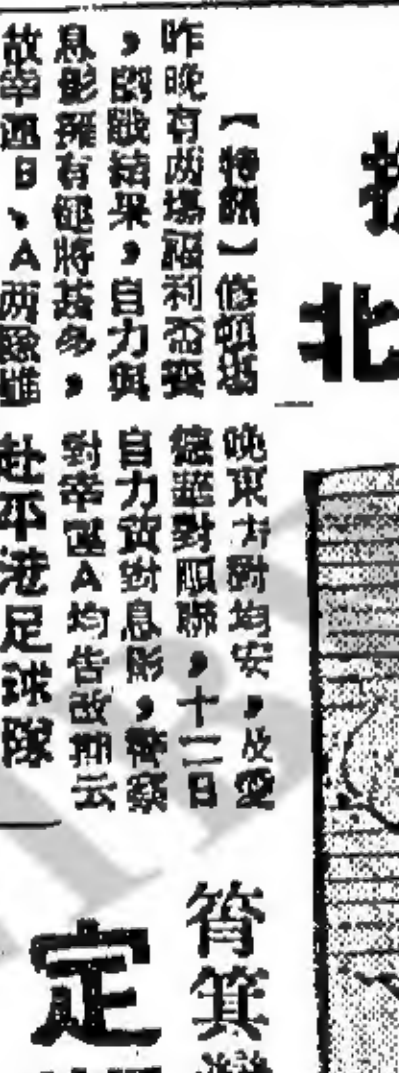 北
【特訊】修頓場
昨晚有兩場福利盃賽
，劇戰結果，自力與
息影擁有健將甚多，
故幸運B、A兩隊雖
晚東方對均安，及愛
德超對順聯，十二日
自力寶對息影，警察
對幸運A均告改期云
赴本港足球隊
筲箕灣
定